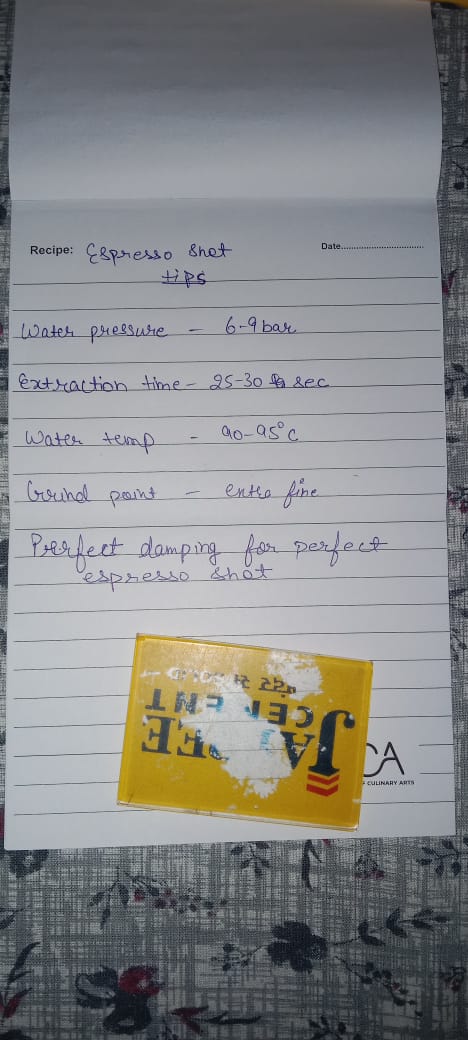 Recipe: Espresso shot Date................................
tips
Water pressure - 6-9 bar
Extraction time - 25-30 sec
Water temp - 90-95°C
Grind point - extra fine
Perfect damping for perfect
espresso shot
JAYPEE
CEMENT
CA
CULINARY ARTS